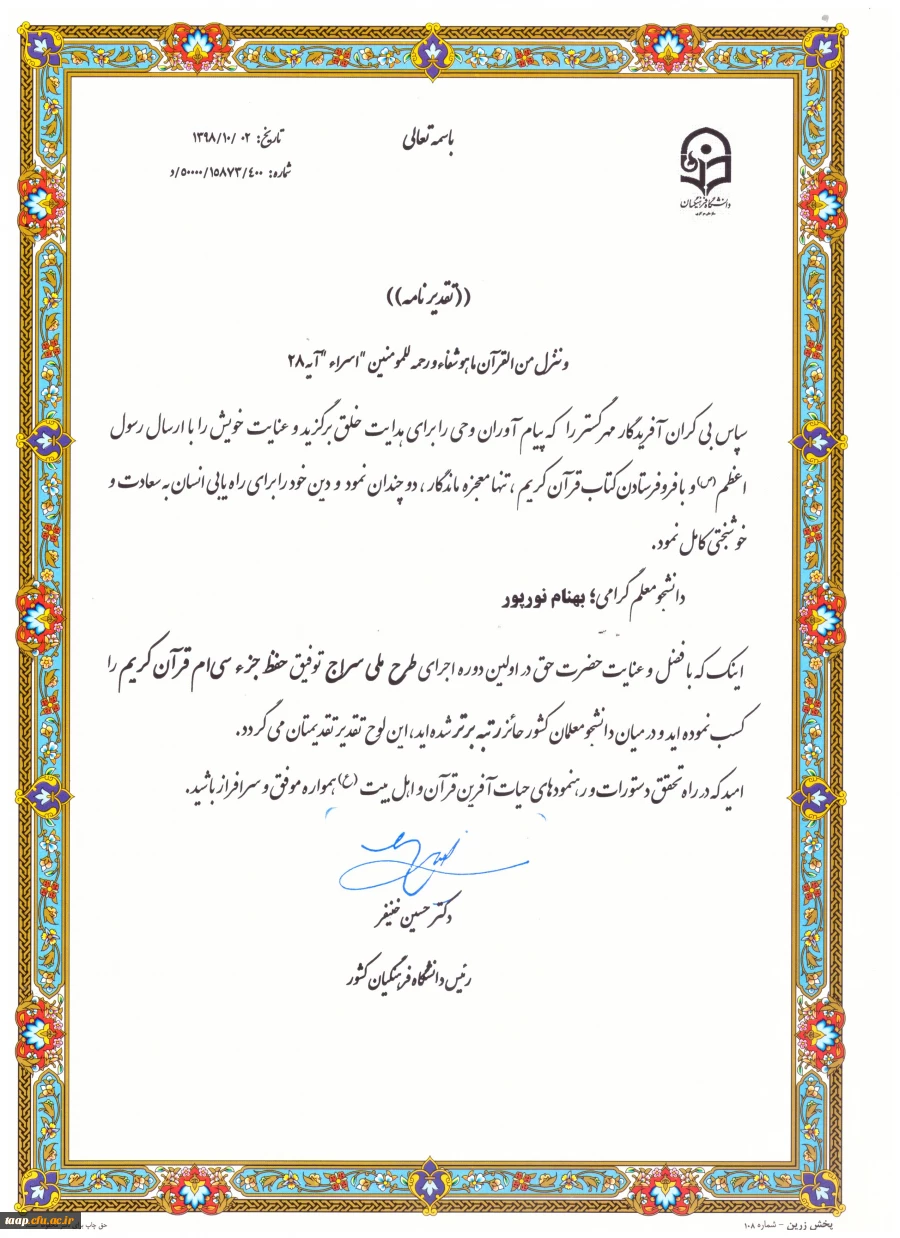 باسمه تعالی
تاریخ: ۱۳۹۸/۱۰/۰۲
شماره: ۵۰۰۰۰/۱۵۸۷۳/۴۰۰/د
دانشگاه فرهنگیان
((تقدیر نامه))
و ننزل من القرآن ما هو شفاء و رحمه للمومنین "اسراء" آیه ۲۸
سپاس بی کران آفریدگار مهرگستر را که پیام آوران وحی را برای هدایت خلق برگزید و عنایت خویش را با ارسال رسول
اعظم (ص) و با فرو فرستادن کتاب قرآن کریم، تنها معجزه ماندگار، دو چندان نمود و دین خود را برای راه یابی انسان به سعادت و
خوشبختی کامل نمود.
دانشجو معلم گرامی؛ بهنام نورپور
اینک که با فضل و عنایت حضرت حق در اولین دوره اجرای طرح ملی سراج توفیق حفظ جزء سی ام قرآن کریم را
کسب نموده اید و در میان دانشجو معلمان کشور حائز رتبه برتر شده اید، این لوح تقدیر تقدیمتان می گردد.
امید که در راه تحقق دستورات و رهنمودهای حیات آفرین قرآن و اهل بیت (ع) همواره موفق و سرافراز باشید.
دکتر حسین خنیفر
رئیس دانشگاه فرهنگیان کشور
پخش زرین - شماره ۱۰۸
حق چاپ
taap.cfu.ac.ir